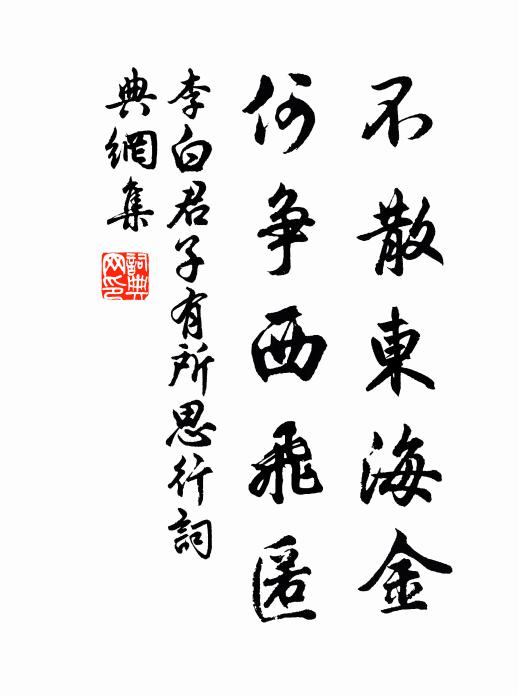 不散東海金
何争西飛匿
李白君子有所思行詞
典網集
詞典網印